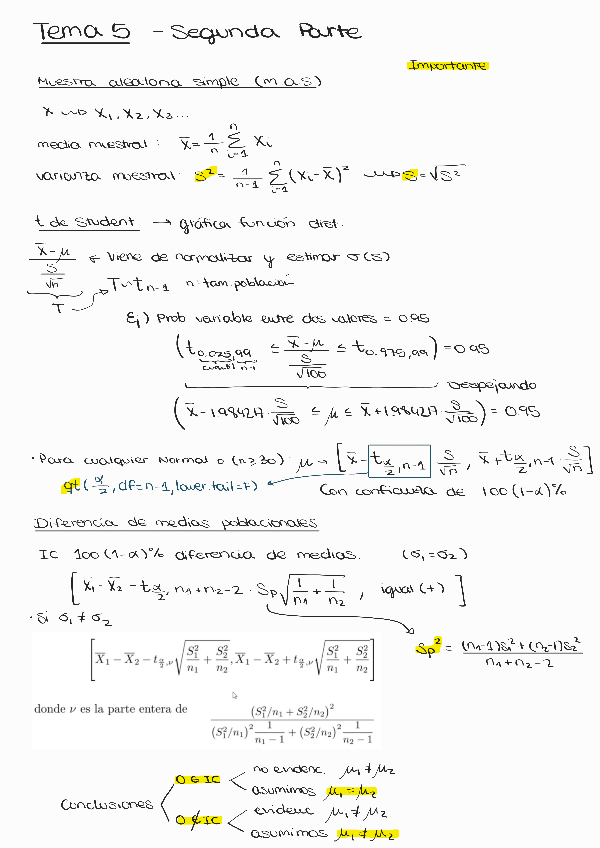 Tema 5 - Segunda Parte
Importante
Muestra aleatoria simple (m a s)
X ⇝ X₁, X₂, X₃...
media muestral: X̄ = 1/n · Σ_{i=1}^{n} Xᵢ
varianza muestral: S² = 1/(n-1) Σ_{i=1}^{n} (Xᵢ - X̄)² ⇝ S = √S²
t de Student → gráfica función dist.
(X̄ - μ)/(S/√n) ← Viene de normalizar y estimar σ(S)
T → T ~ t_{n-1} n: tam. población
Ej) Prob variable entre dos valores = 0.95
(t_{0.025,99} ≤ (X̄ - μ)/(S/√100) ≤ t_{0.975,99}) = 0.95
cuantil n-1
Despejando
(X̄ - 1.98427 · S/√100 ≤ μ ≤ X̄ + 1.98427 · S/√100) = 0.95
· Para cualquier Normal o (n ≥ 30): μ → [X̄ - t_{α/2, n-1} S/√n, X̄ + t_{α/2, n-1} · S/√n]
qt(α/2, df=n-1, lower.tail=F)
Con confianza de 100(1-α)%
Diferencia de medias poblacionales
IC 100(1-α)% diferencia de medias. (σ₁ = σ₂)
[X̄₁ - X̄₂ - t_{α/2, n₁+n₂-2} · Sp √(1/n₁ + 1/n₂), igual (+)]
· Si σ₁ ≠ σ₂
Sp² = ((n₁-1)S₁² + (n₂-1)S₂²)/(n₁+n₂-2)
[X̄₁ - X̄₂ - t_{α/2,ν} √(S₁²/n₁ + S₂²/n₂), X̄₁ - X̄₂ + t_{α/2,ν} √(S₁²/n₁ + S₂²/n₂)]
donde ν es la parte entera de (S₁²/n₁ + S₂²/n₂)² / ((S₁²/n₁)² 1/(n₁-1) + (S₂²/n₂)² 1/(n₂-1))
Conclusiones
0 ∈ IC
no evidenc. μ₁ ≠ μ₂
asumimos μ₁ = μ₂
0 ∉ IC
evidenc μ₁ ≠ μ₂
asumimos μ₁ ≠ μ₂